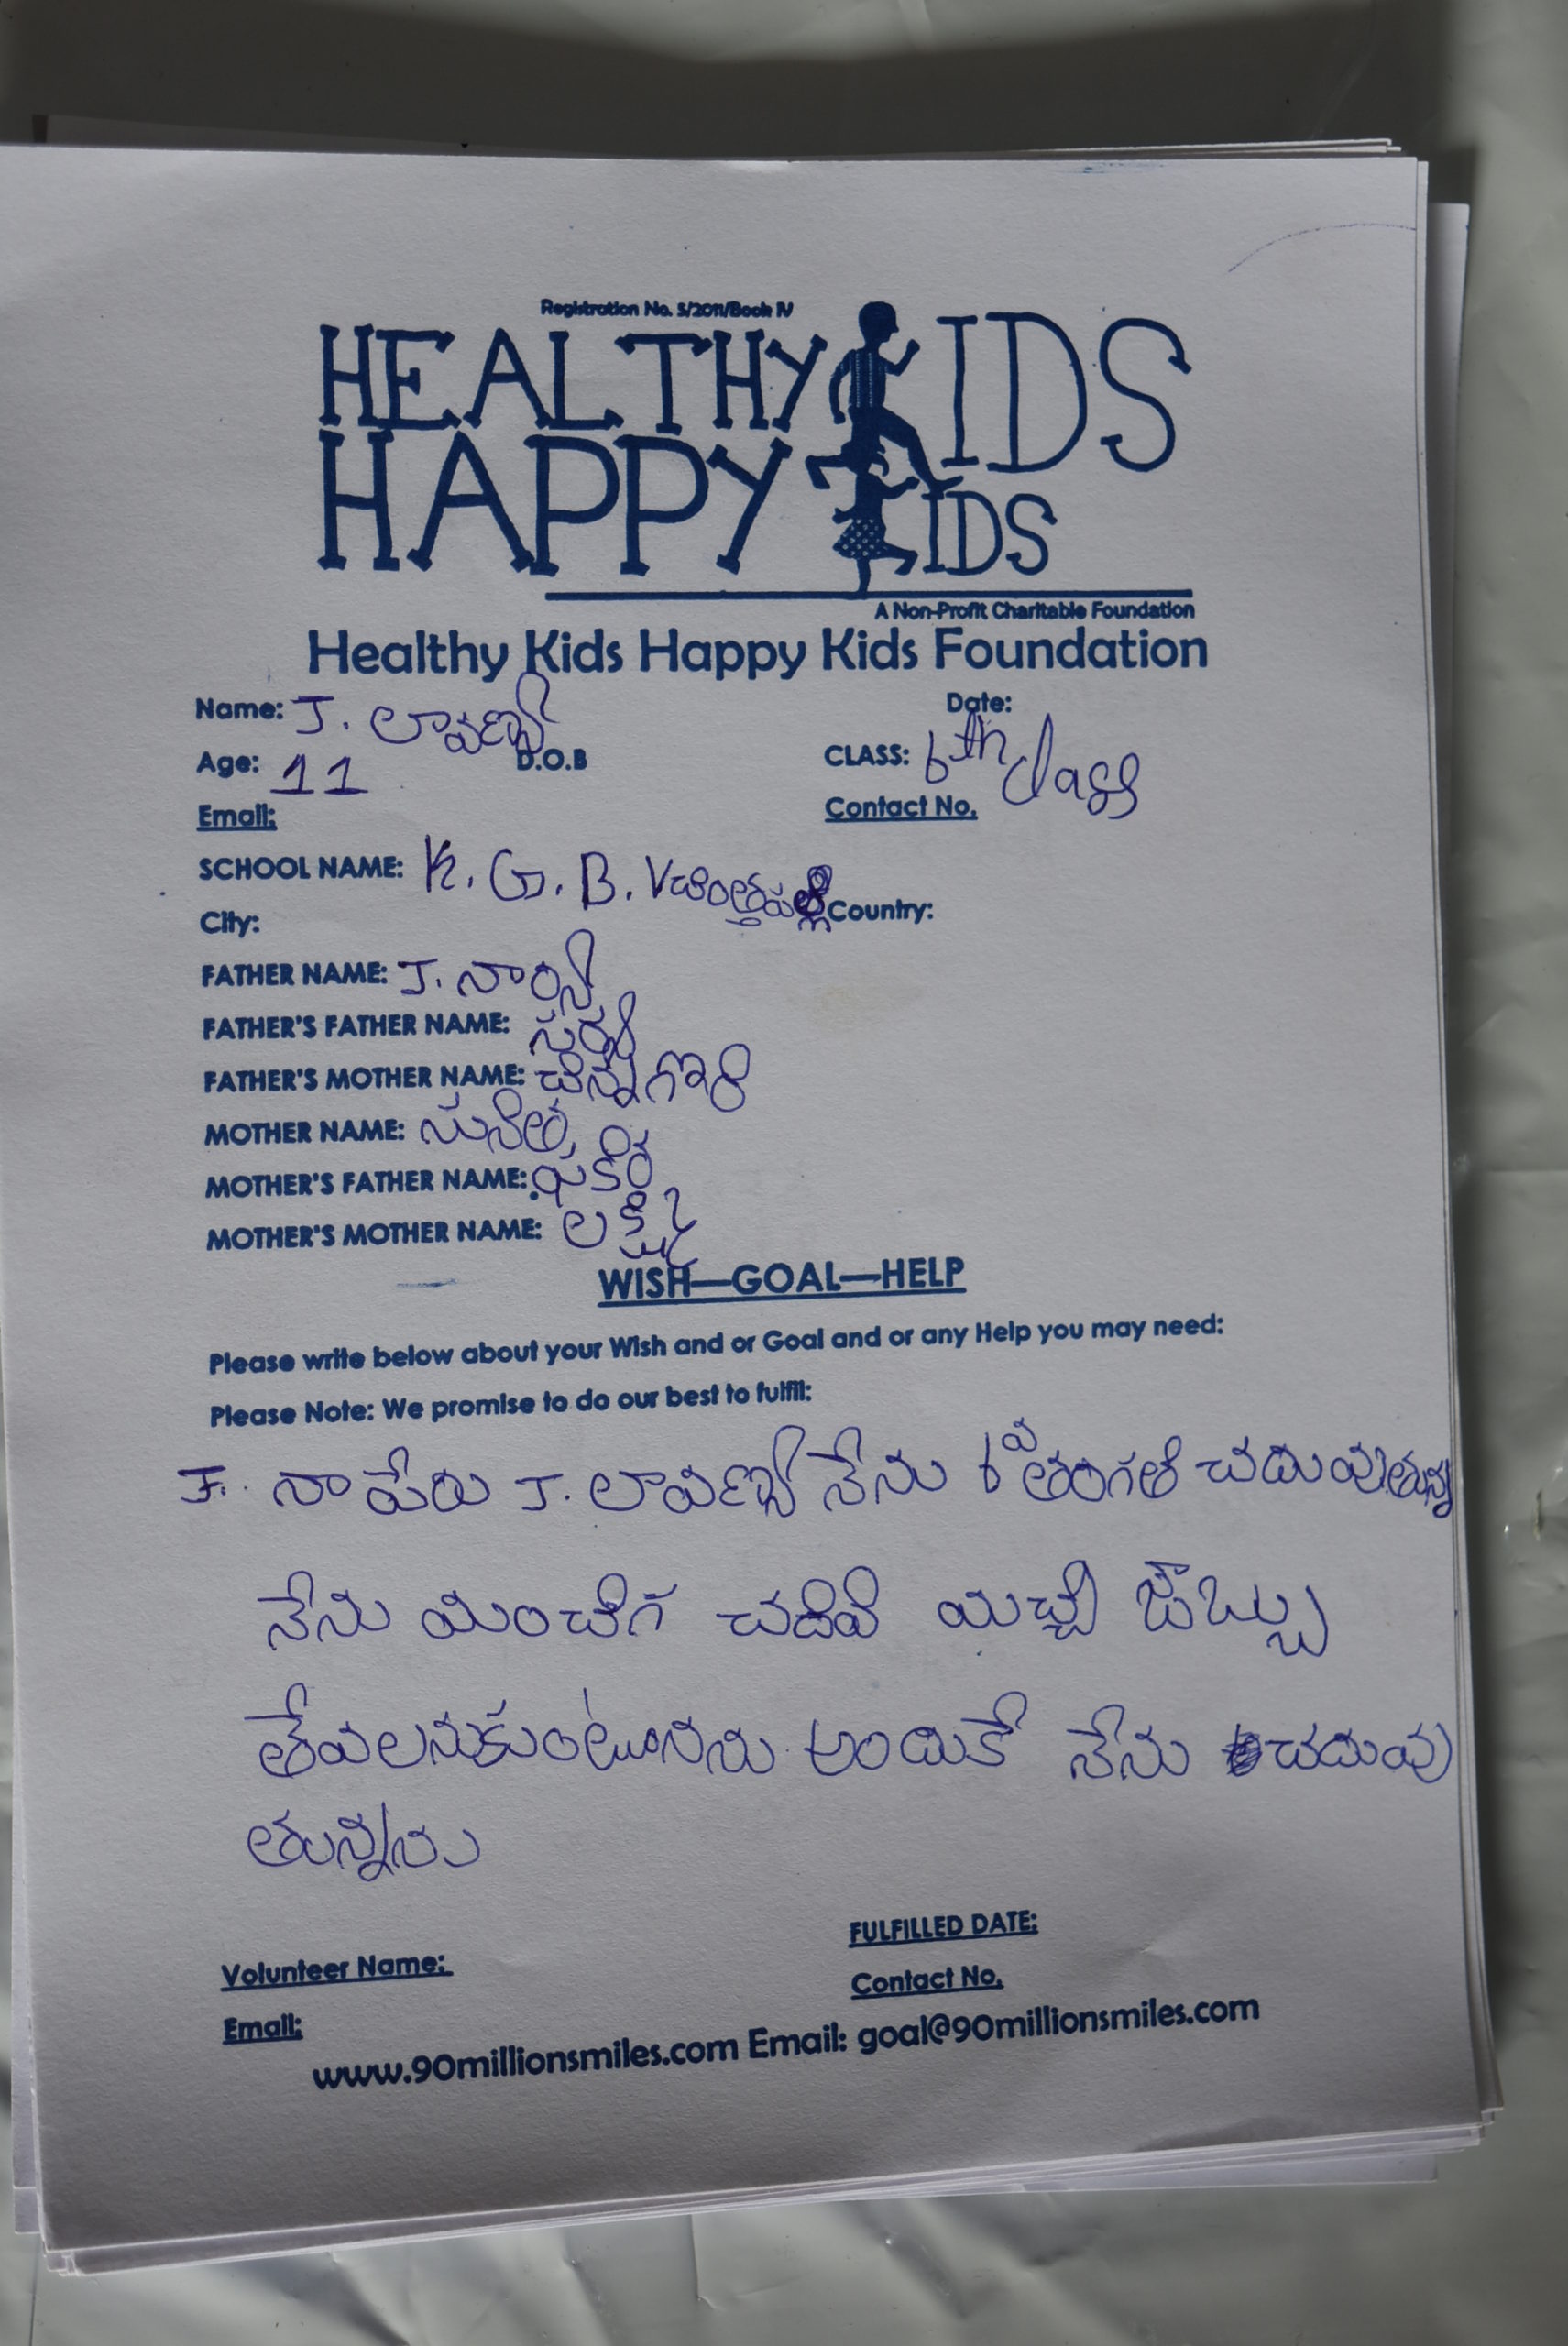 Registration No. 5/2011/Book IV
HEALTHY KIDS
HAPPY KIDS
A Non-Profit Charitable Foundation
Healthy Kids Happy Kids Foundation
Name: J. లావణ్య Date:
Age: 11 D.O.B CLASS: 6th class
Email: Contact No.
SCHOOL NAME: K. G. B. V చింత్తపల్లి
City: Country:
FATHER NAME: J.
FATHER'S FATHER NAME:
FATHER'S MOTHER NAME:
MOTHER NAME:
MOTHER'S FATHER NAME:
MOTHER'S MOTHER NAME: లక్ష్మి
WISH—GOAL—HELP
Please write below about your Wish and or Goal and or any Help you may need:
Please Note: We promise to do our best to fulfil:
J. నా పేరు J. లావణ్య నేను 6వ తరంగతి చదువుతున్న
నేను యించిగ చదివి యిచ్చి జాబ్బు
నేను చదువు
తున్నాను
FULFILLED DATE:
Volunteer Name: Contact No.
Email:
www.90millionsmiles.com Email: goal@90millionsmiles.com